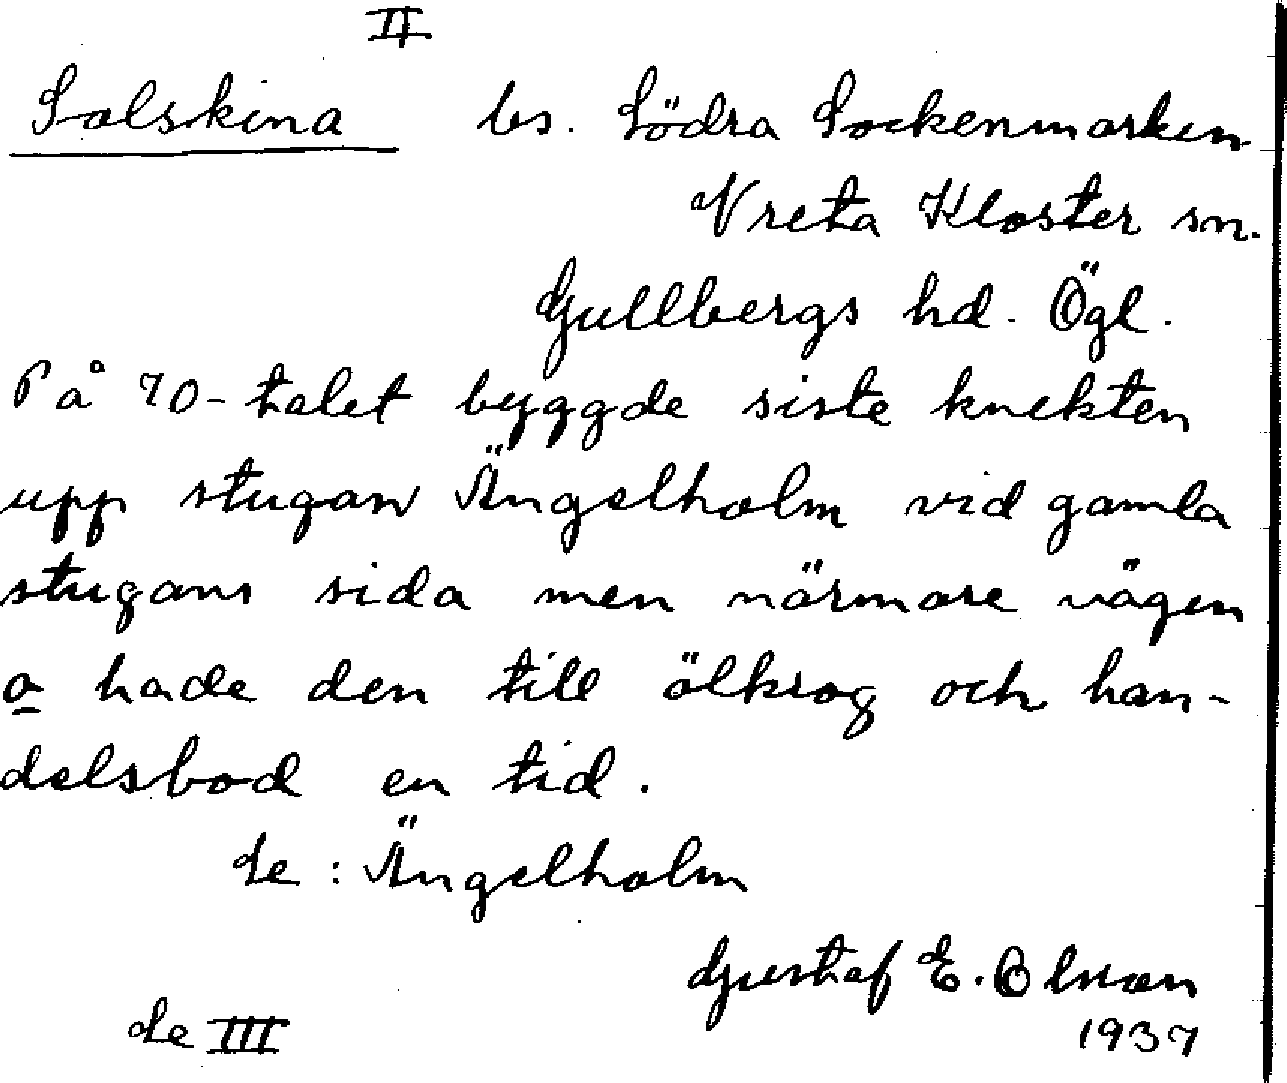 II
Solskina bs. Södra Sockenmarken
Vreta Kloster sn.
Gullbergs hd. Ögl.
På 70-talet byggde siste knekten
upp stugan Ängelholm vid gamla
stugans sida men närmare vägen
o hade den till ölkrog och han-
delsbod en tid.
Se: Ängelholm
Gustaf E. Olsson
1937
Se III